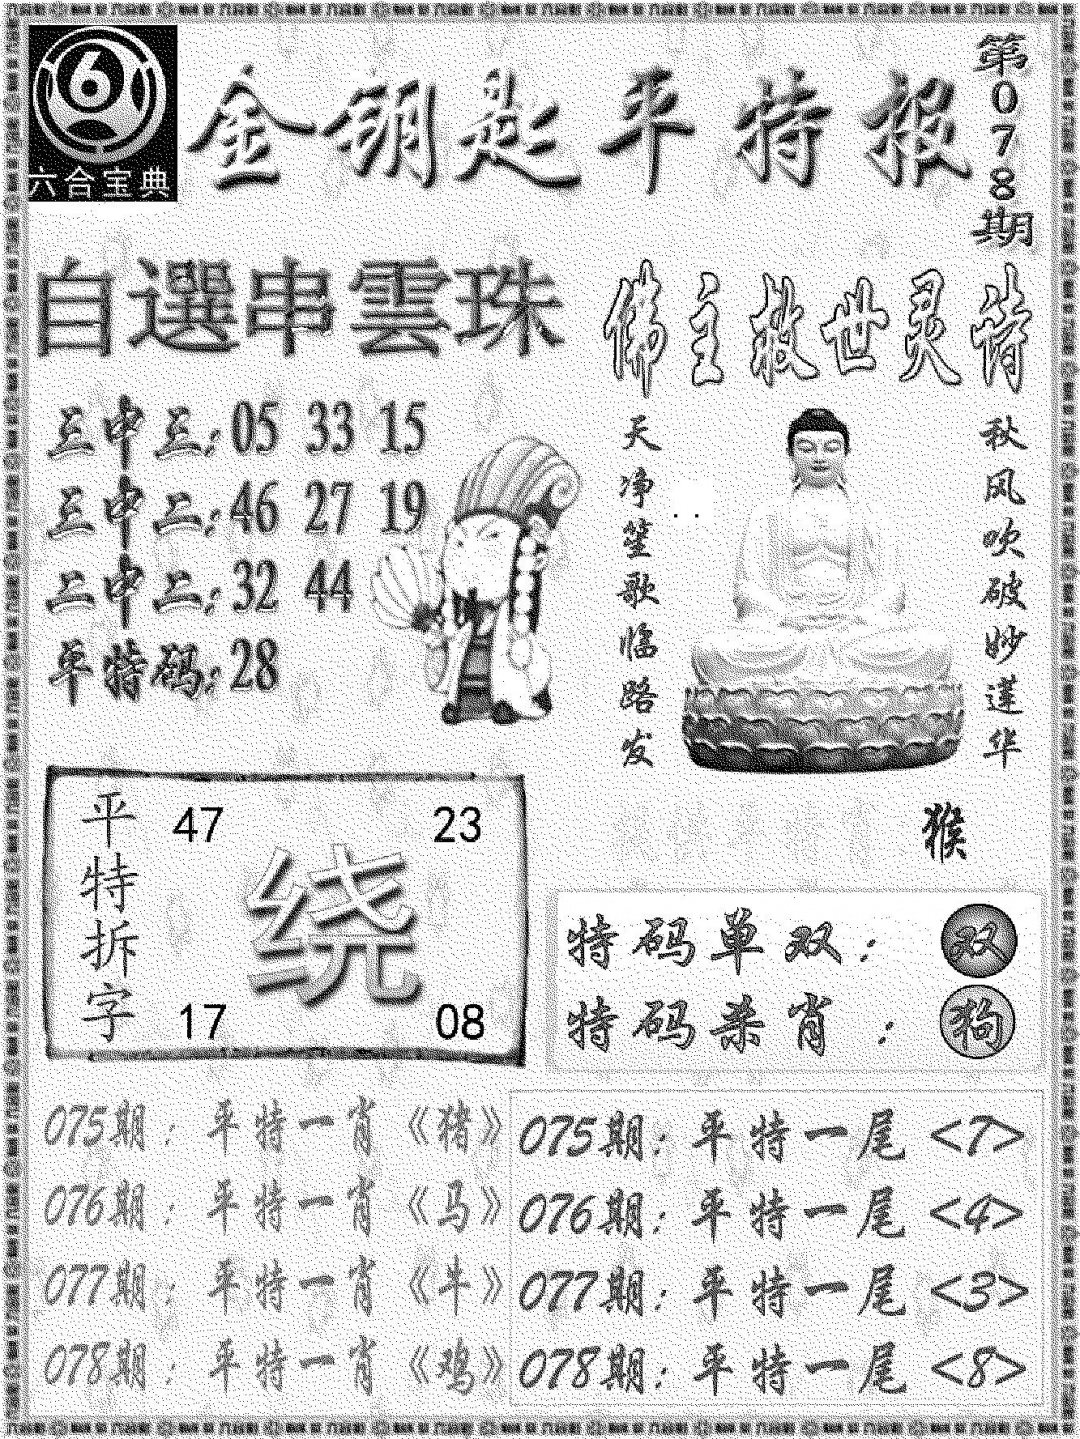 六合宝典
金钥匙平特报
第078期
自選串雲珠
三中三:05 33 15
三中二:46 27 19
二中二:32 44
单特码:28
佛主救世灵诗
秋风吹破妙莲华
天净笙歌临路发
猴
平特拆字
47 23
绕
17 08
特码单双: 双
特码杀肖: 狗
075期:平特一肖《猪》
076期:平特一肖《马》
077期:平特一肖《牛》
078期:平特一肖《鸡》
075期:平特一尾<7>
076期:平特一尾<4>
077期:平特一尾<3>
078期:平特一尾<8>